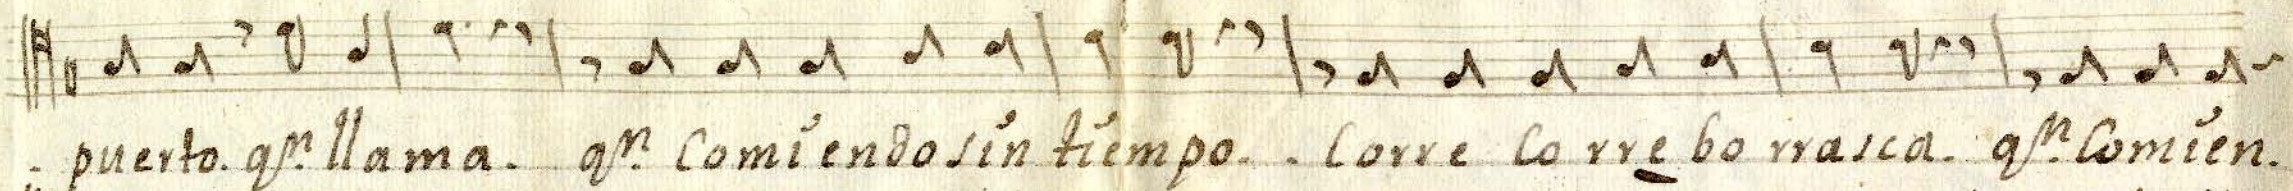 puerto. qn. llama. qn. Comiendo sin tiempo. Corre Corre borrasca. qn. Comien.